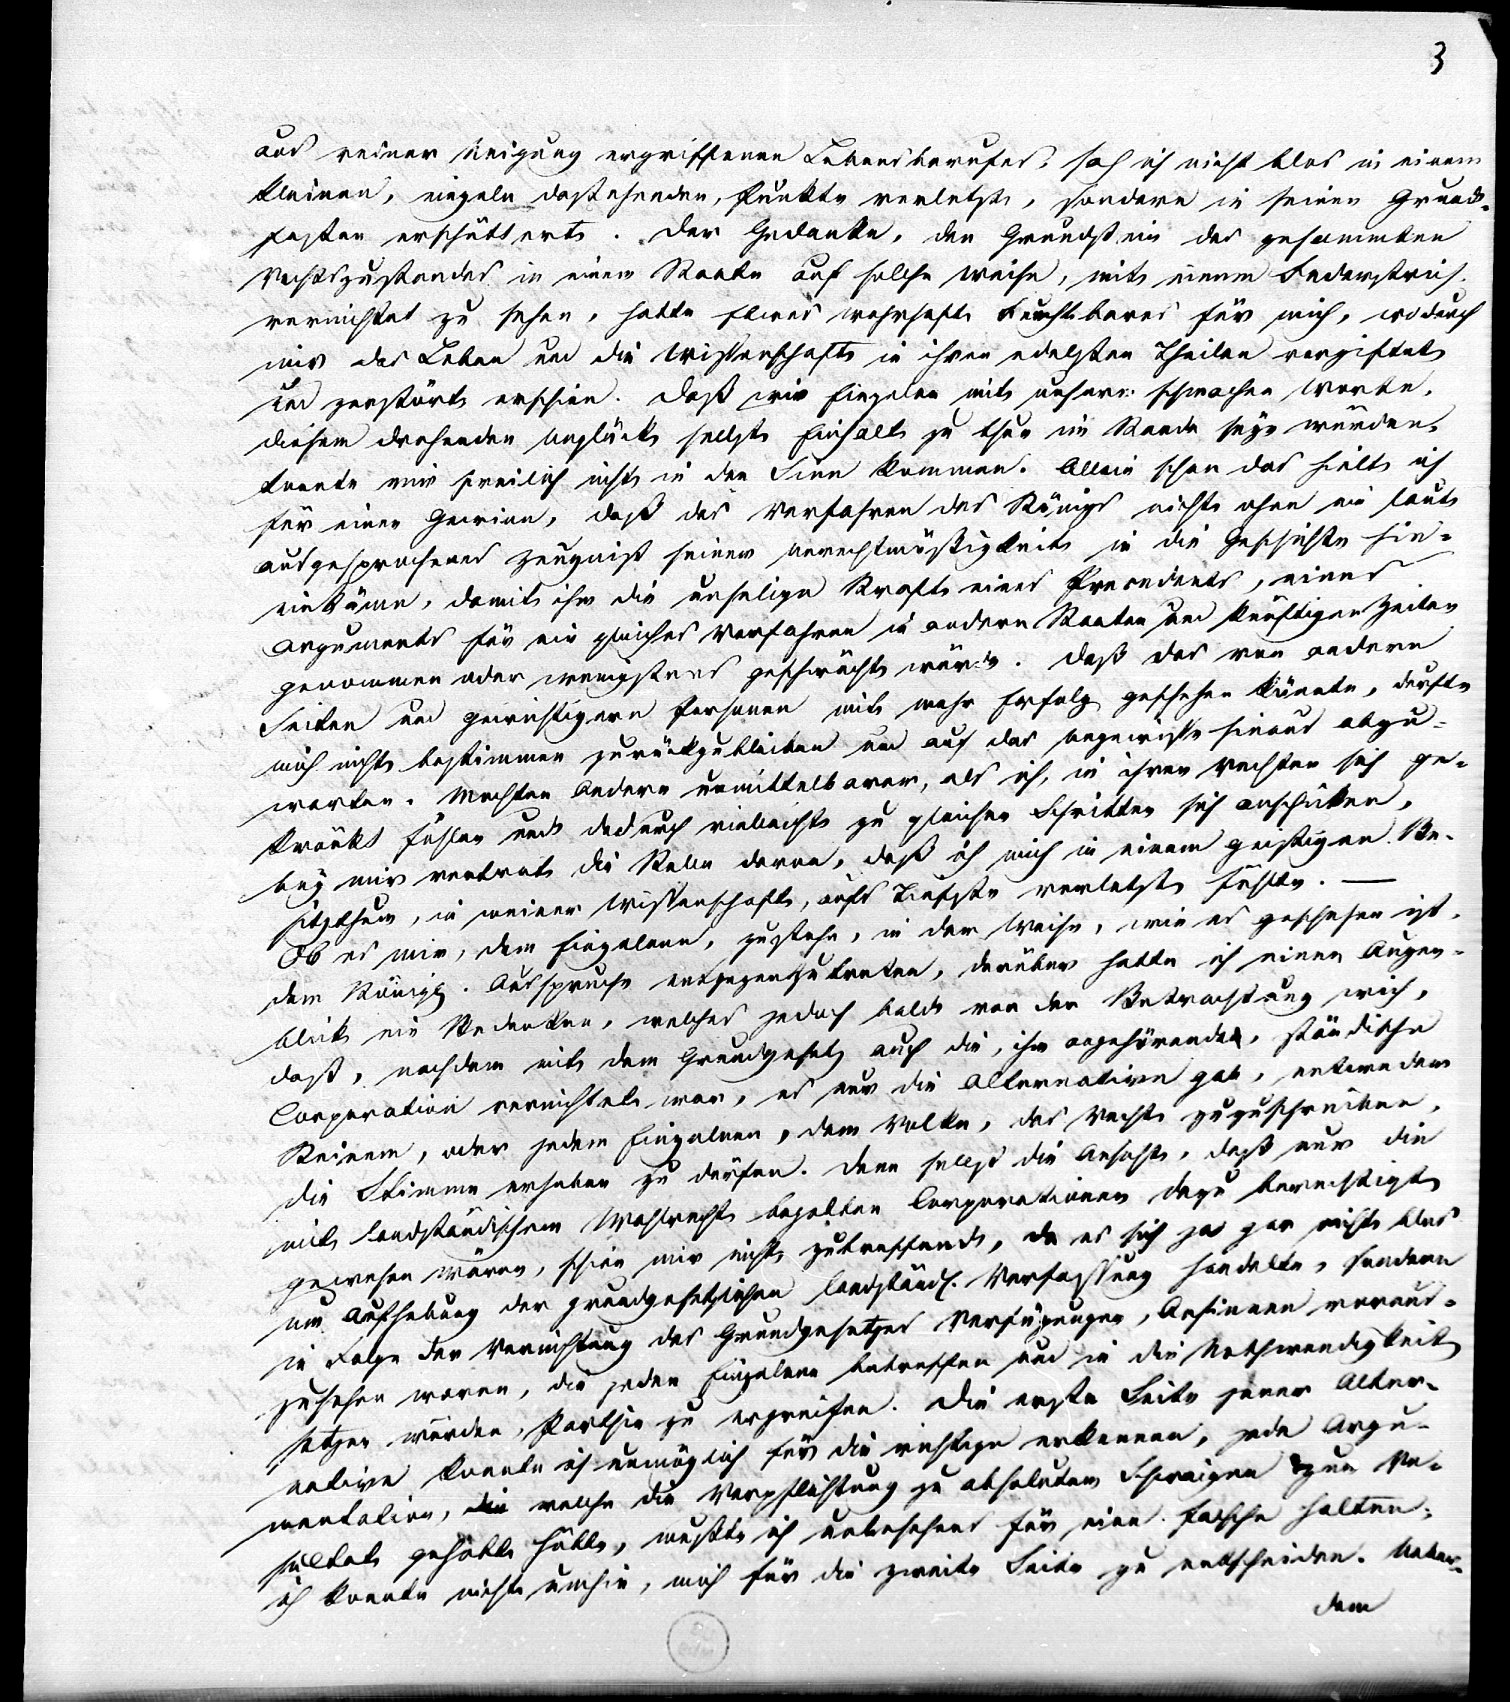 3
aus reiner Neigung ergriffenen Lebensberufes, sah ich nicht blos in einem
kleinen, einzeln dastehenden, Punkte verletzt, sondern in seinen Grund-
festen erschüttert. Der Gedanke, den Grundstein des gesammten
Rechtszustandes in einem Staate auf solche Weise, mit einem Federstrich
vernichtet zu sehen, hatte etwas wahrhaft Furchtbares für mich, wodurch
mir das Leben und die Wissenschaft in ihren edelsten Theilen vergiftet
und zerstört erschien. Daß wir Einzelne mit unserm schwachen Worte,
diesem drohenden Unglück selbst Einhalt zu thun im Stande seyn würden,
konnte mir freilich nicht in den Sinn kommen. Allein schon das hielt ich
für einen Gewinn, daß das Verfahren des Königs nicht ohne ein laut
ausgesprochenes Zeugniß seiner Unrechtmäßigkeit in die Geschichte hin-
einkäme, damit ihm die unselige Kraft eines Precedents, eines
Arguments für ein gleiches Verfahren in andern Staaten und künftigen Zeiten
genommen oder wenigstens geschwächt würde. Daß das von andern
Seiten und gewichtigern Personen mit mehr Erfolg geschehen könnte, durfte
mich nicht bestimmen zurückzubleiben und auf das Ungewisse hinaus abzu-
warten. Mochten Andere unmittelbarer, als ich, in ihren Rechten sich ge-
kränkt fühlen und dadurch vielleicht zu gleichen Schritten sich anschicken,
bey mir vertrat die Stelle davon, daß ich mich in einem geistigen Be-
sitzthum, in meiner Wissenschaft, aufs Tiefste verletzt fühlte. —
Ob es mir, dem Einzelnen, zustehe, in der Weise, wie es geschehen ist,
dem Königl. Ausspruche entgegenzutreten, darüber hatte ich einen Augen-
blick ein Bedenken, welches jedoch bald von der Betrachtung wich,
daß, nachdem mit dem Grundgesetz auch die, ihm angehörende, ständische
Corporation vernichtet war, es nur die Alternative gab, entweder
Keinem, oder jedem Einzelnen, dem Volke, das Recht zuzuschreiben,
die Stimme erheben zu dürfen. Denn selbst die Ansicht, daß nur die
mit landständischem Wahlrecht begabten Corporationen dazu berechtigt
gewesen wären, schien mir nicht zutreffend, da es sich ja gar nicht blos
um Aufhebung der grundgesetzlichen landständ. Verfassung handelte, sondern
in Folge der Vernichtung des Grundgesetzes Verfügungen, Ansinnen voraus-
zusehen waren, die jeden Einzelnen betreffen und in die Nothwendigkeit
setzen würden, Parthie zu ergreifen. Die erste Seite jener Alter-
native konnte ich unmöglich für die richtige erkennen, jede Argu-
mentation, welche die Verpflichtung zu absolutem Schweigen zum Re-
sultat gehabt hätte, mußte ich unbesehens für eine falsche halten;
ich konnte nicht umhin, mich für die zweite Seite zu entscheiden. Unter-
dem